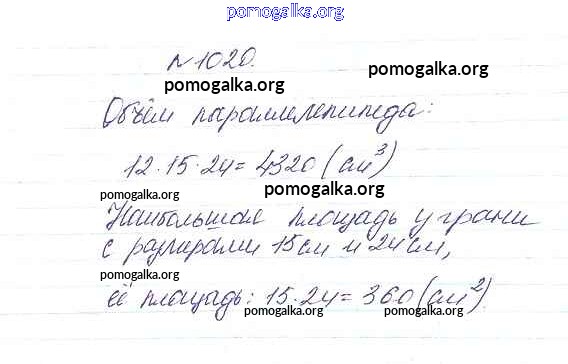 pomogalka.org
№1020.
pomogalka.org
Объём параллелепипеда:
pomogalka.org pomogalka.org
12·15·24=4320(см³)
pomogalka.org pomogalka.org
Наибольшая площадь у грани
с размерами 15см и 24см,
pomogalka.org pomogalka.org
её площадь: 15·24=360(см²)
pomogalka.org pomogalka.org